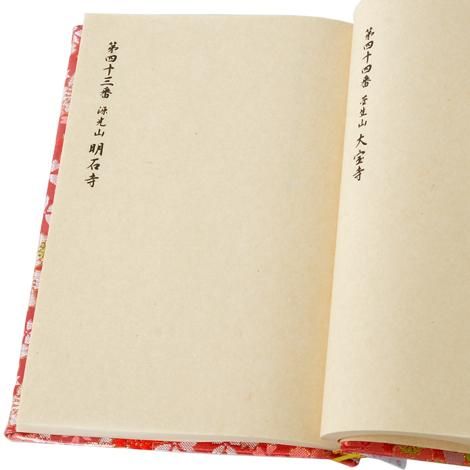 第四十三番 源光山 明石寺
第四十四番 菅生山 大宝寺